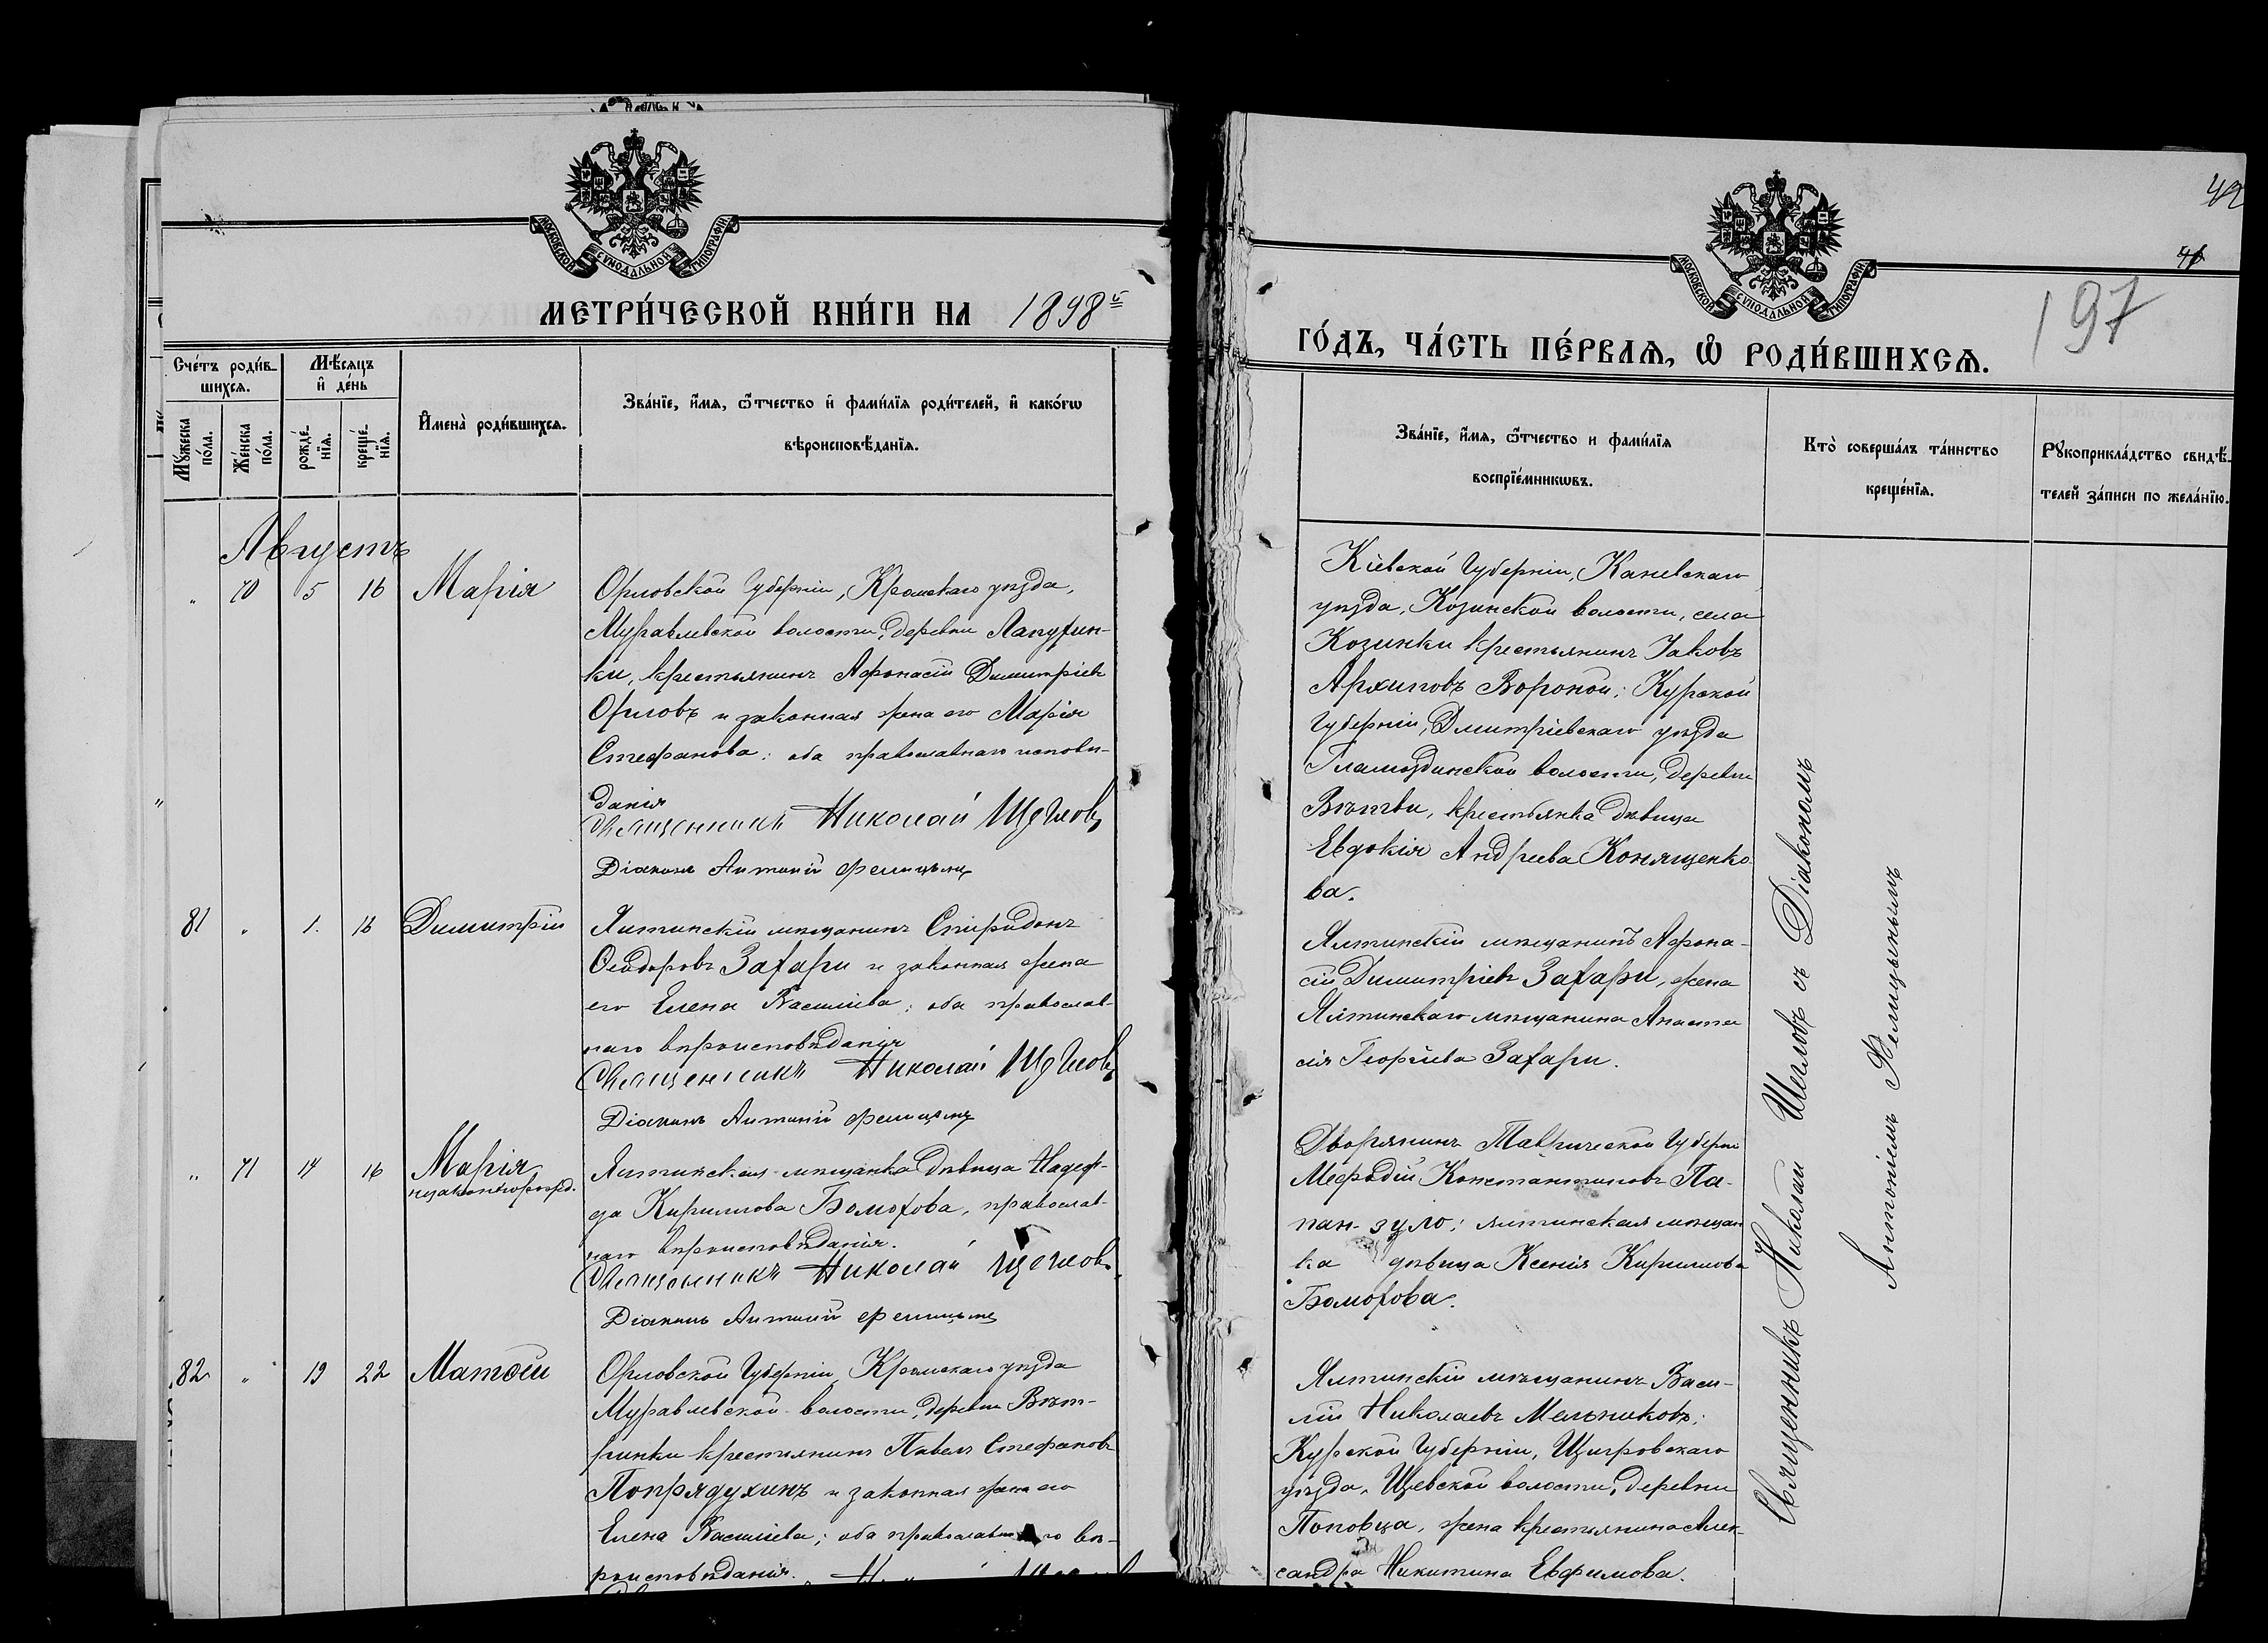 МОСКОВСКОЙ СѴНОДАЛЬНОЙ ТИПОГРАФІИ
МЕТРИ́ЧЕСКОЙ КНИ́ГИ НА 1898й
Сче́тъ роди́в-
шихся.
Мѣ́сяцъ
и҆ де́нь
Мꙋ́жеска
по́ла.
Же́нска
по́ла.
рожде́-
нїѧ.
креще́-
нїѧ.
И҆мена̀ роди́вшихся.
Зва́нїе, и҆́мѧ, ѻ҆́тчество и҆ фами́лїѧ роди́телей, и҆ како́гѡ
вѣроисповѣ́данїѧ.
Августъ
" 70 5 16 Марія
Орловской Губерніи, Кромскаго уѣзда,
Муравлевской волости, деревни Лапухин-
ки, крестьянинъ Афонасій Димитріевъ
Орловъ и законная жена его Марія
Стефанова: оба православнаго исповѣ-
данія
Священникъ Николай Щегловъ
Діаконъ Антоній Фелицынъ
81 " 1. 16 Димитрій
Ялтинскій мѣщанинъ Спиридонъ
Ѳеодоровъ Захари и законная жена
его Елена Васильева; оба православ-
наго вѣроисповѣданія
Священникъ Николай Щегловъ
Діаконъ Антоній Фелицынъ
" 71 14 16 Марія
незаконнорожд.
Ялтинская мѣщанка дѣвица Надеж-
да Кириллова Боможова, православ-
наго вѣроисповѣданія.
Священникъ Николай Щегловъ
Діаконъ Антоній Фелицынъ
82 " 19 22 Матѳій
Орловской Губерніи, Кромскаго уѣзда
Муравлевской волости, деревни Вѣт-
ринки крестьянинъ Павелъ Стефановъ
Попрядухинъ и законная жена его
Елена Васильева; оба православнаго вѣ-
роисповѣданія.
42
41
197
МОСКОВСКОЙ СѴНОДАЛЬНОЙ ТИПОГРАФІИ
ГО́ДЪ, ЧА́СТЬ ПЕ́РВАѦ, Ѡ҆ РОДИ́ВШИХСѦ.
Зва́нїе, и҆́мѧ, ѻ҆́тчество и фами́лїѧ
воспрїе́мникѡвъ.
Кто̀ соверша́лъ та́инство
креще́нїѧ.
Рꙋкоприкла́дство свидѣ́-
телей за́писи по жела́нїю.
Кіевской Губерніи, Каневскаго
уѣзда, Козинской волости, села
Козинки крестьянинъ Іаковъ
Архиповъ Вороной; Курской
Губерніи, Дмитріевскаго уѣзда
Гламоздинской волости, деревни
Вѣтви, крестьянка дѣвица
Евдокія Андреева Конященко-
ва.
Ялтинскій мѣщанинъ Афона-
сій Димитріевъ Захари, жена
Ялтинскаго мѣщанина Анаста
сія Георгіева Захари.
Дворянинъ Таврической Губерніи
Мефодій Константиновъ Па-
пан-зуло; ялтинская мѣщан
ка дѣвица Ксенія Кириллова
Боможова.
Ялтинскій мѣщанинъ Васи-
лій Николаевъ Мельниковъ;
Курской Губерніи, Щигровскаго
уѣзда, Щевской волости, деревни
Поповца, жена крестьянина Алек-
сандра Никитина Евфимова.
Священникъ Николай Щегловъ съ Діакономъ
Антоніемъ Фелицынымъ